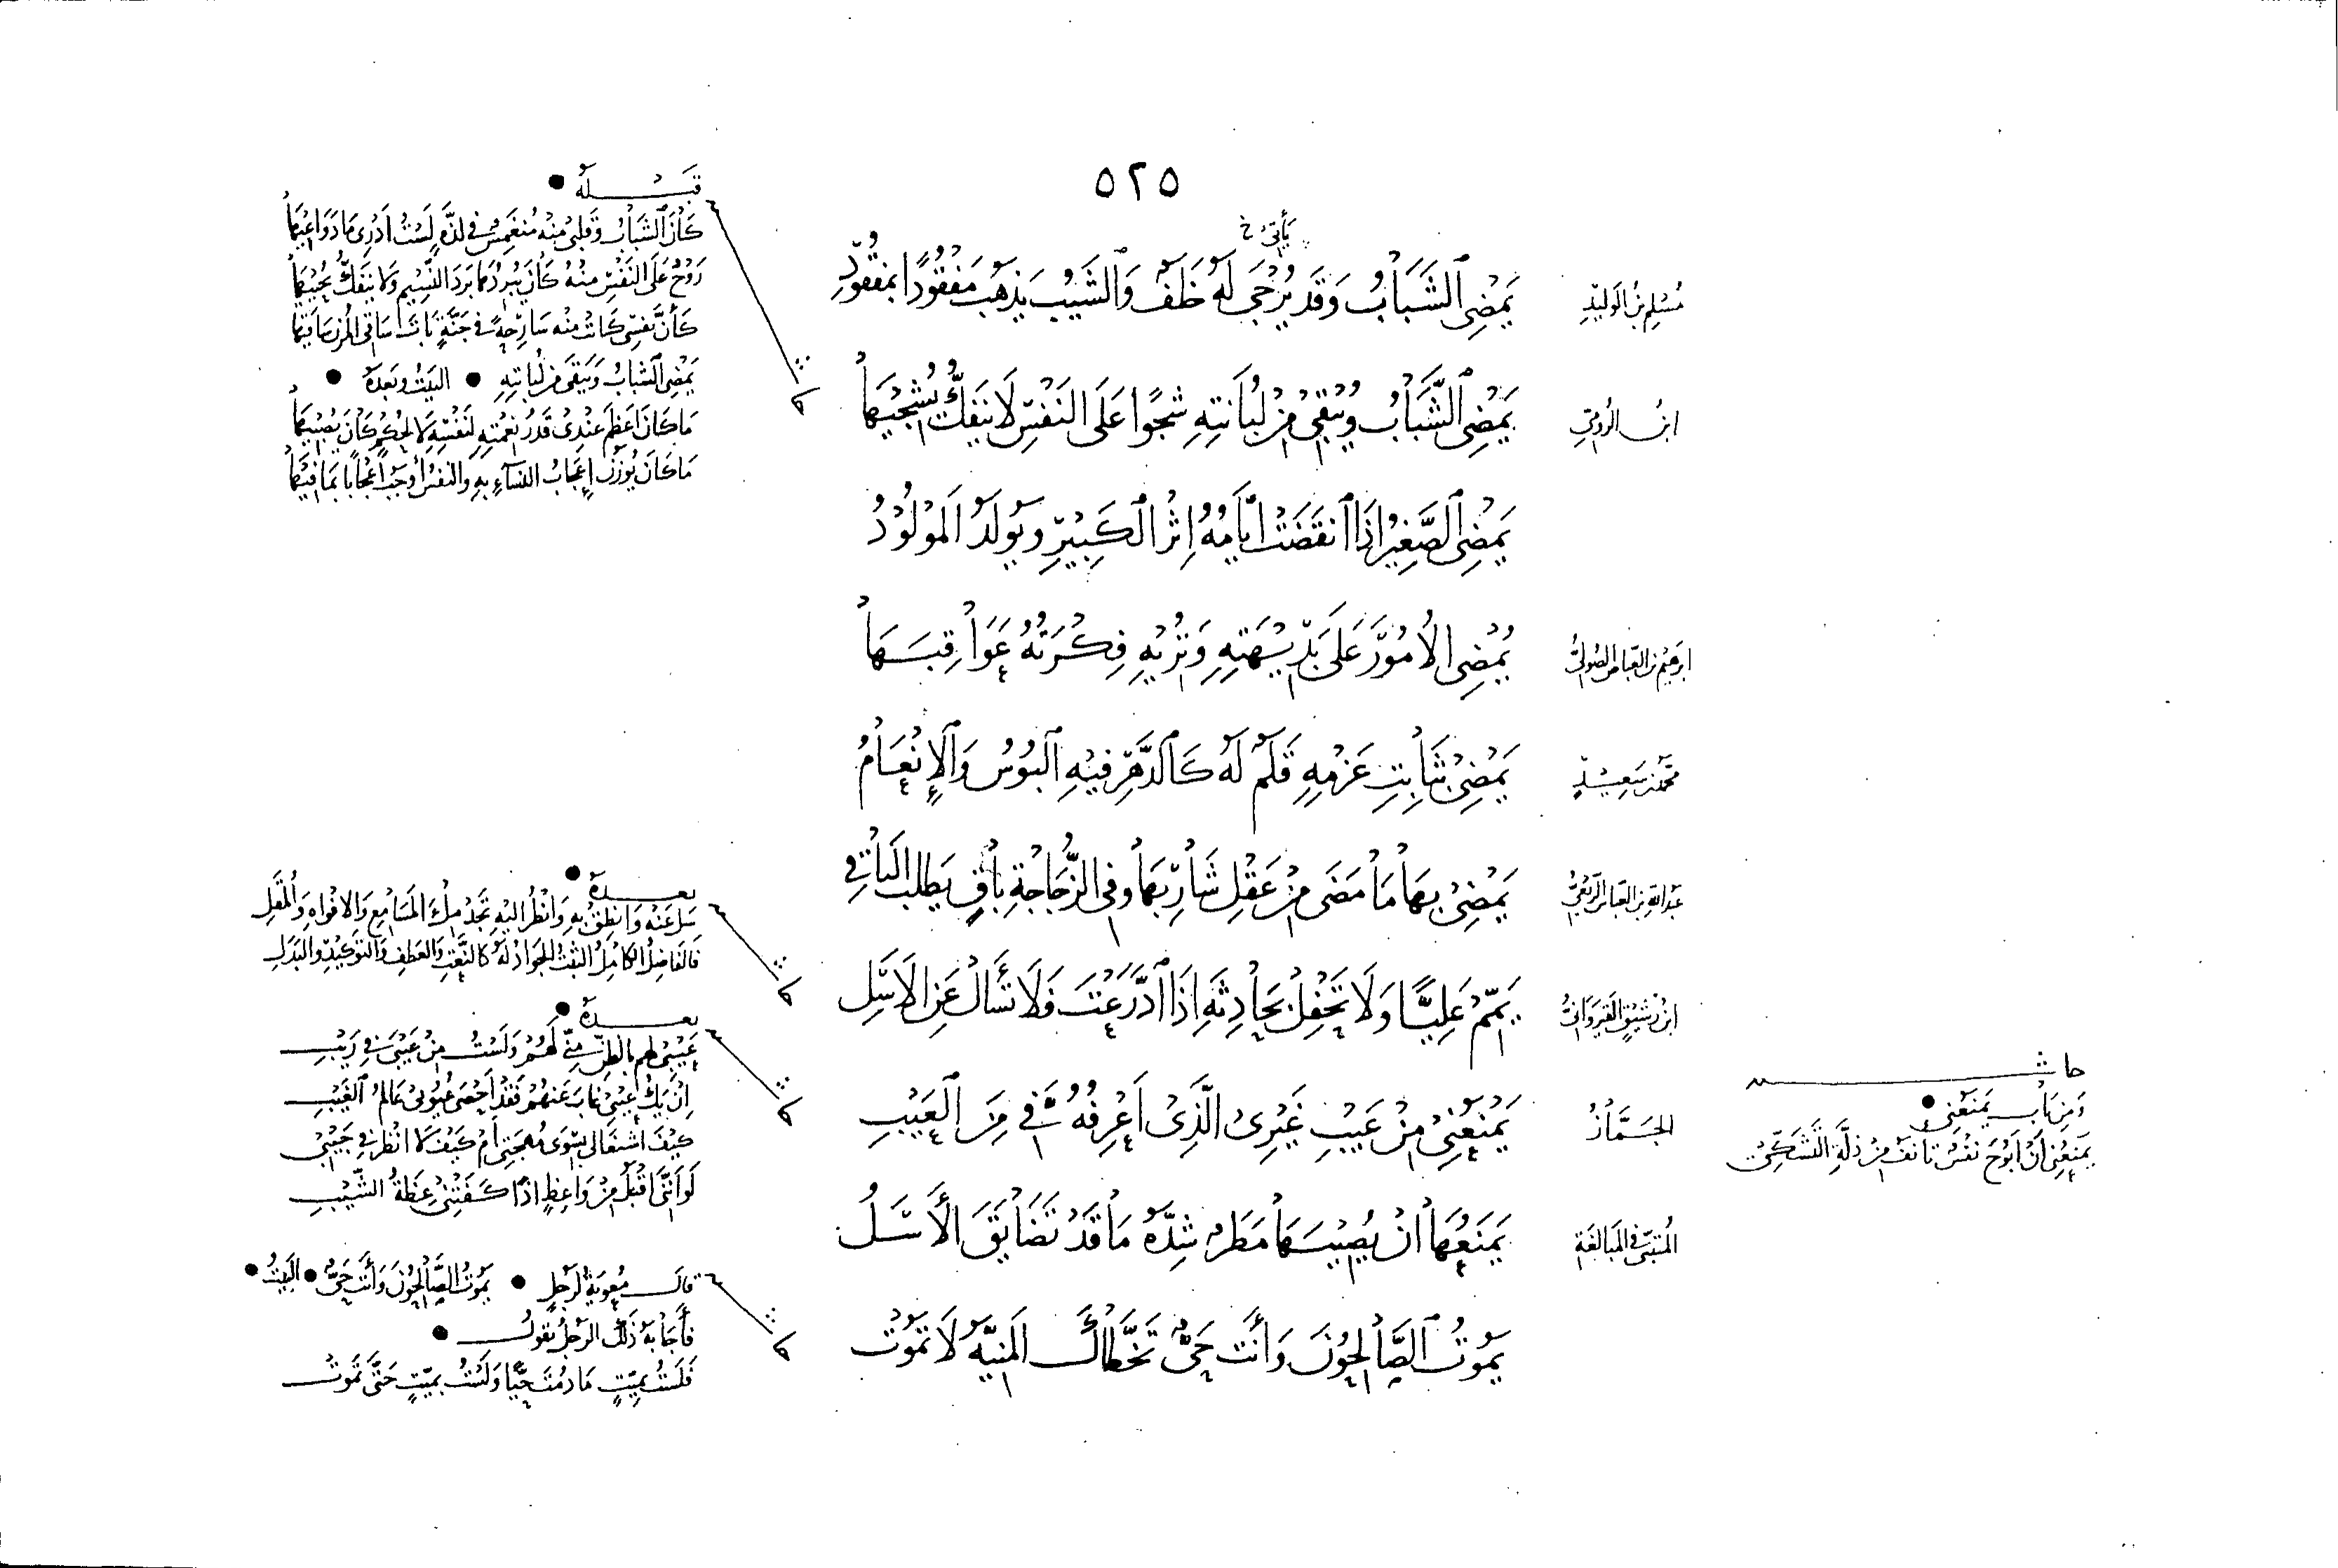 ٥٢٥
يأتي خ
مُسْلِم بن الوَليدِ
يَمْضِي الشَّبَابُ وَقَد يُرْجَى لَهُ خَلَفٌ وَالشَّيْبُ يَذهَبُ مَفْقُودًا بمفقُودِ
ابن الرُّومِيّ
يَمْضِي الشَّبَابُ ويُبْقِي مِنْ لُبَانَتِهِ شجْوًا عَلَى النَّفْسِ لَا يَنفَكُّ يُشجِيْهَا
يَمْضِي الصَّغِيرُ إذَا انقَضَتْ أيَّامُهُ اِثْرَ الْكَبِيْرِ ويُولَدُ المَوْلُوْدُ
ابرهيم بن العباس الصُولِيُّ
يُمْضِي الأُمُوْرَ عَلَى بَدِيْهَتِهِ وَتُرِيْهِ فِكْرَتُهُ عَوَاقِبَهَا
محمَّد بن سَعِيْدٍ
يَمْضِيْ بثَابِتِ عَزْمِهِ قَلَمٌ لَهُ كَالدَّهْرِ فيْهِ البُوسُ وَالإنْعَامُ
عبد الله بن العباس الرَّبيْعِيُّ
يَمْضِيْ بهَا مَا مَضَى مِنْ عَقْلِ شَارِبهَا وفي الزُّجَاجَةِ بَاقٍ يَطلبُ البَاقي
ابن رَشِيْقٍ القَيْرَوَانيُّ
يَمِّمْ عَلِيًّا وَلَا تَحْفِلْ بحَادِثَةٍ إذَا ادَّرَعْتَ فَلَا تَسْأَلْ عَنِ الأسَلِ
الجَمَّازُ
يَمْنَعُنِيْ مِنْ عَيْبِ غَيْرِىْ الَّذِىْ اَعْرِفُهُ فيَّ مِنَ الْعَيْبِ
المُتنبّي في المبَالغَةِ
يَمْنَعُهَا انْ يُصِيْبَهَا مَطَرٌ شِدَّةُ مَا قَدْ تَضَايَقَ الأَسَلُ
يَمُوتُ الصَّالِحُوْنَ وَأنتَ حَيٌّ تَخَطَّاكَ المَنِيَّةُ لَا تَمُوْتُ
قَبْلَهُ
كَانَ الشَّبَابُ وَقَلبيْ مِنْهُ مُنْغَمِسٌ في لذَّةٍ لَسْتُ أدْرِى مَا دَوَاعِيْهَا
رَوْحٌ عَلَى النَّفْسِ مِنْهُ كَانَ يُبْرِدُهَا بَرْدَ النَّسِيْمِ ولَا ينفَكُّ يُحْيِيْهَا
كَأنَّ نَفْسِى كَانَت مِنْهُ سَارِحَةً في جَنَّةٍ بَاتَ سَاقي المزنِ سَاقيْهَا
يَمْضِي الشَّبَابُ وَيَبْقَى مِنْ لُبانتِهِ البَيْتُ وبَعدَهُ
مَا كَانَ اعْظَمَ عِنْدِىْ قَدْرَ نِعْمَتِهِ لنَفْسِهِ لَا لحُكْمٍ كَانَ يُصْبِيْهَا
مَا كَانَ يُوزَنُ إعْجَابُ النِّسَاءِ بهِ والنفسُ أوجَبُ اعْجَابًا بمَا فيْهَا
بعدَهُ
سَل عَنْهُ وَانْطِقْ بهِ وَانْظُر اليْهِ تَجدْ مِلْءَ المَسَامِعِ والافواهِ وَالمُقَلِ
فَالفَاضِلُ الكَامِلُ الثَبْتُ الجَوادُ لَهُ كالنَّعتِ والعَطفِ وَالتَّوكيْدِ والبَدَلِ
بعدَهُ
عَيْبِي لهم بالظنِّ مِنِّي لَهُم وَلَسْتُ مِنْ عَيْبيَ في رَيْبِ
اِنْ يَكُ عَيْبي غابَ عَنهُمْ فَقَدْ أحْصَى عُيُوبيْ عَالمُ الغَيْبِ
كيْفَ اشتغالي بسِوَى مُهجَتي اَمْ كَيفَ لَا انْظرُ في جَيْبيْ
لَو اَنَّني اقْبَلُ مِنْ وَاعِظٍ اِذًا كَفَتْنِيْ عِظَةُ الشَّيْبِ
قالَ مُعويَةُ لرَجُلٍ يَمُوْتُ الصَّالِحُوْنَ وَأنتَ حَيٌّ البَيْتُ
فأَجَابهُ ذَلكَ الرَّجُلُ يقولُ
فَلَستُ بميّتٍ مَا دُمْتَ حَيًّا وَلَسْتُ بميّتٍ حَتَّى تَمُوْتُ
حاشية
وَمِن باب يَمنَعُني
يَمنَعُنِي أنْ ابُوْحَ نفْسٌ تأنَفُ مِنْ ذلَّةِ التَّشَكِّيْ